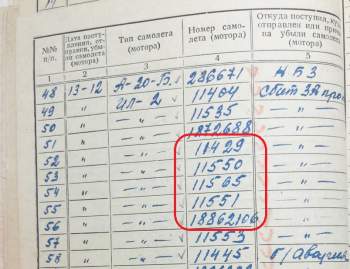 №№ п/п. Дата поступления, отправления, убыли самолета (мотора) Тип самолета (мотора) Номер самолета (мотора) Откуда поступил, ку отправлен или приче на убыли самолета (мотора)
1 2 3 4 5
48 13-12 А-20-Б. 286671 НБЗ
49 " ил-2 11404 Сбит ЗА
50 " — " — 11535 — " —
51 " — " — 1872688 — " —
52 " — " — 11429 — " —
53 " — " — 11550 — " —
54 " — " — 11565 — " —
55 " — " — 11551 — " —
56 " — " — 18862106 — " —
57 " — " — 11553 — " —
58 " — " — 11445